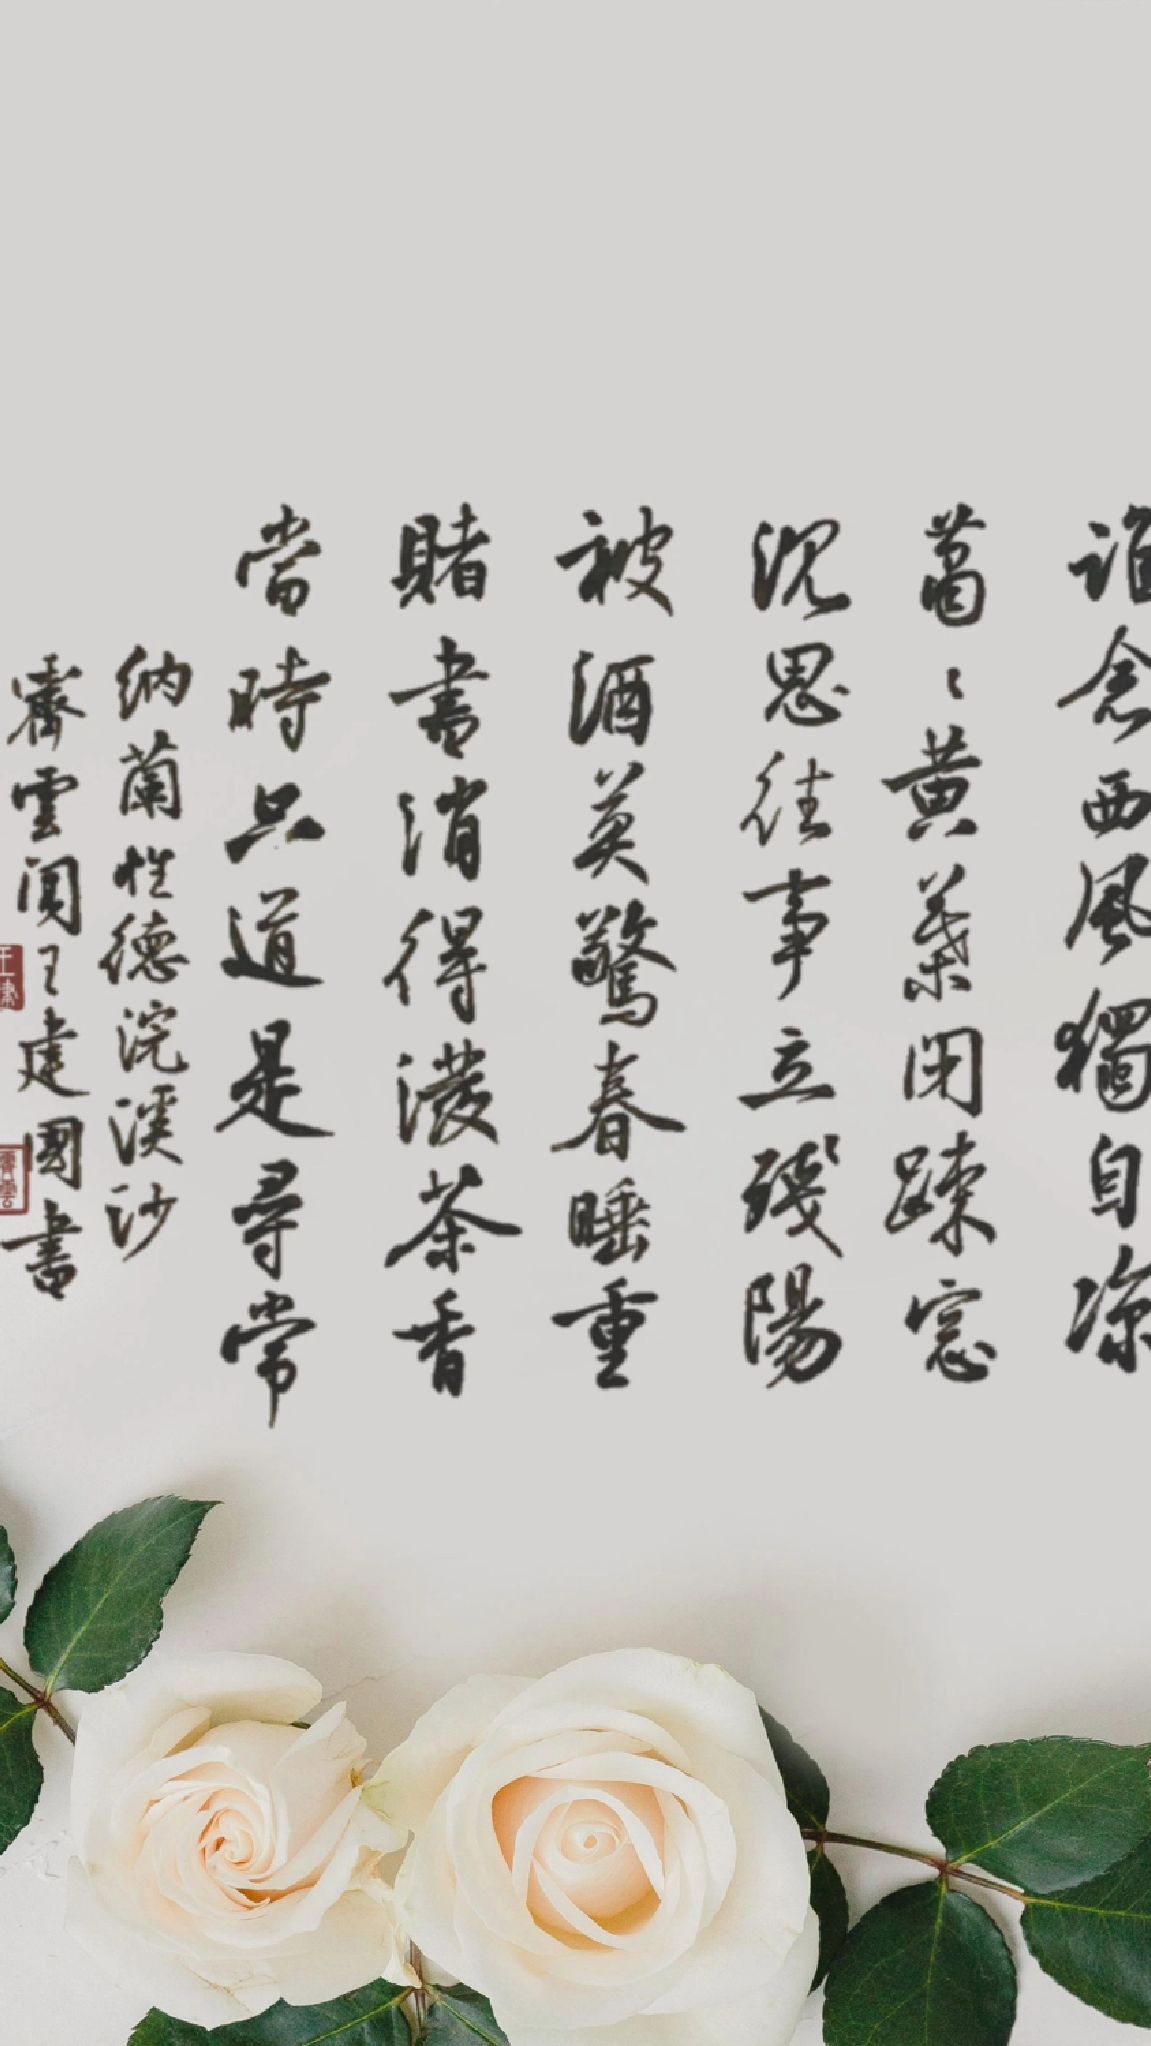 誰念西風獨自涼
蕭〻黃葉閉疎窓
沉思往事立殘陽
被酒莫驚春睡重
賭書消得潑茶香
當時只道是尋常
納蘭性德浣溪沙
霽雲閣王建國書